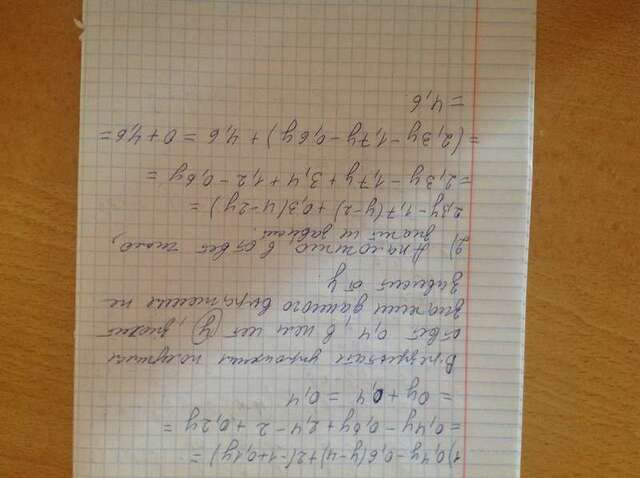 1) 0,4y - 0,6(y-4) + 2(-1+0,1y) =
= 0,4y - 0,6y + 2,4 - 2 + 0,2y =
= 0y + 0,4 = 0,4
В результате упрощения получился
ответ 0,4, в нем нет y, значит
значение данного выражения не
зависит от y.
2) Аналогично, в ответ число,
значит не зависит.
2,3y - 1,7(y-2) + 0,3(4-2y) =
= 2,3y - 1,7y + 3,4 + 1,2 - 0,6y =
= (2,3y - 1,7y - 0,6y) + 4,6 = 0 + 4,6 =
= 4,6